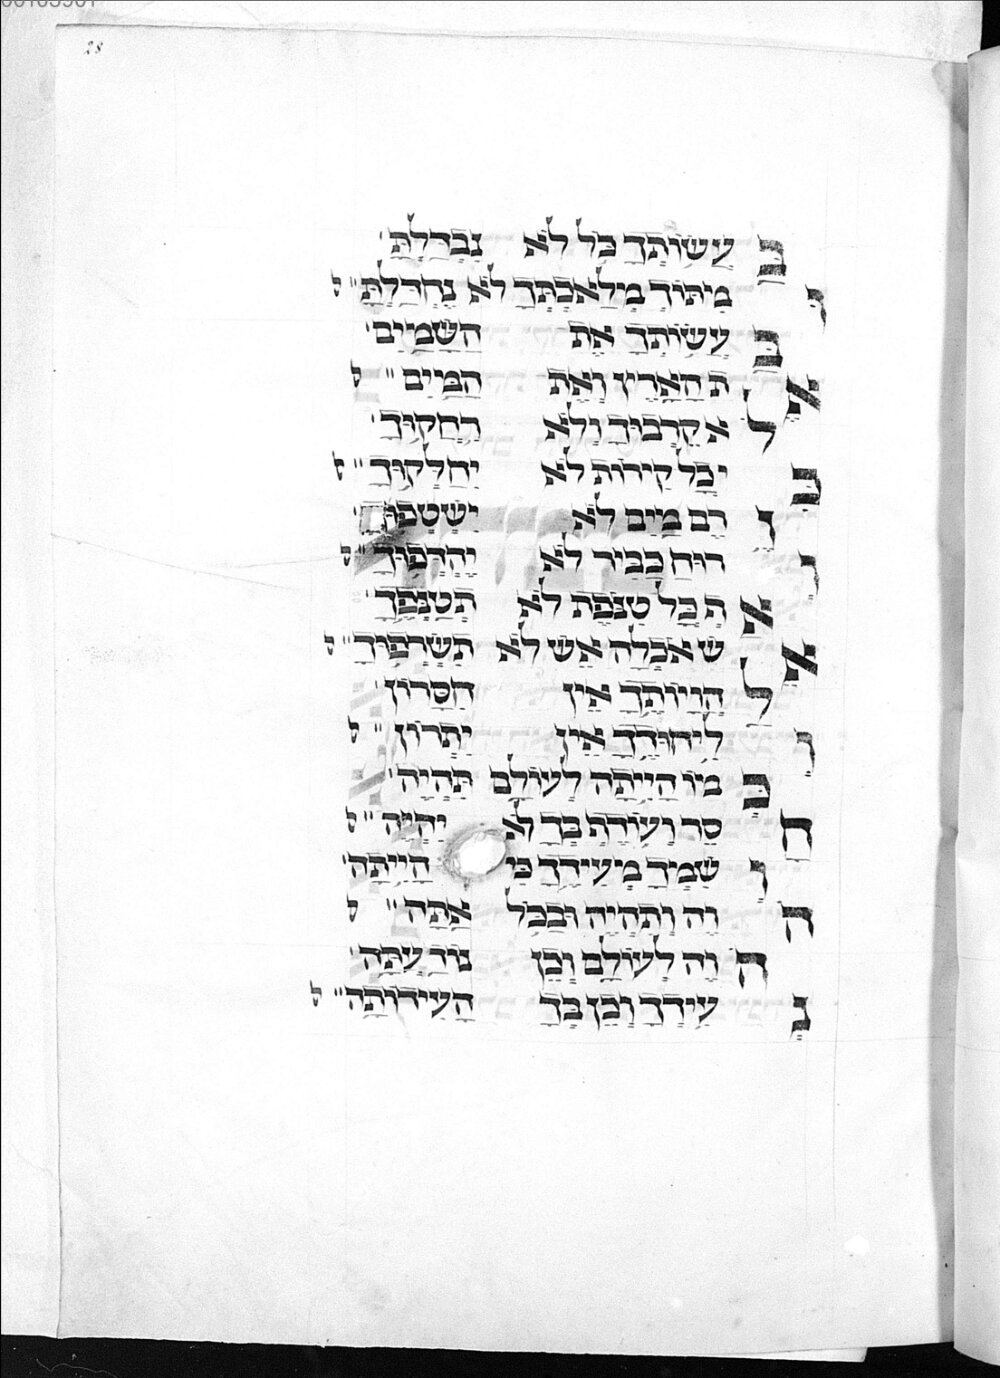 28
בעשותך כל לא נבדלת׳
ומתוך מלאכתך לא נחדלת״ ל
בעשותך את השמים׳
את הארץ ואת המים״ ל
לא קרבוך ולא רחקוך׳
כי כל קירות לא יחלקוך״ ל
זרם מים לא ישטפוך׳
ורוח כביר לא יהדפוך״ ל
אף כל טנפת לא תטנפך׳
אש אכלה אש לא תשרפוך״ ל
להויותך אין חסרון׳
וליחודך אין יתרון״ ל
כמו הייתה לעולם תהיה׳
חסר ועודף בך לא יהיה״ ל
ושמך מעידך כי הייתה׳
הוה ותהיה ובכל אתה״ ל
הוה לעולם וכן נודעתה׳
נעידך וכן בך העידותה״ ל